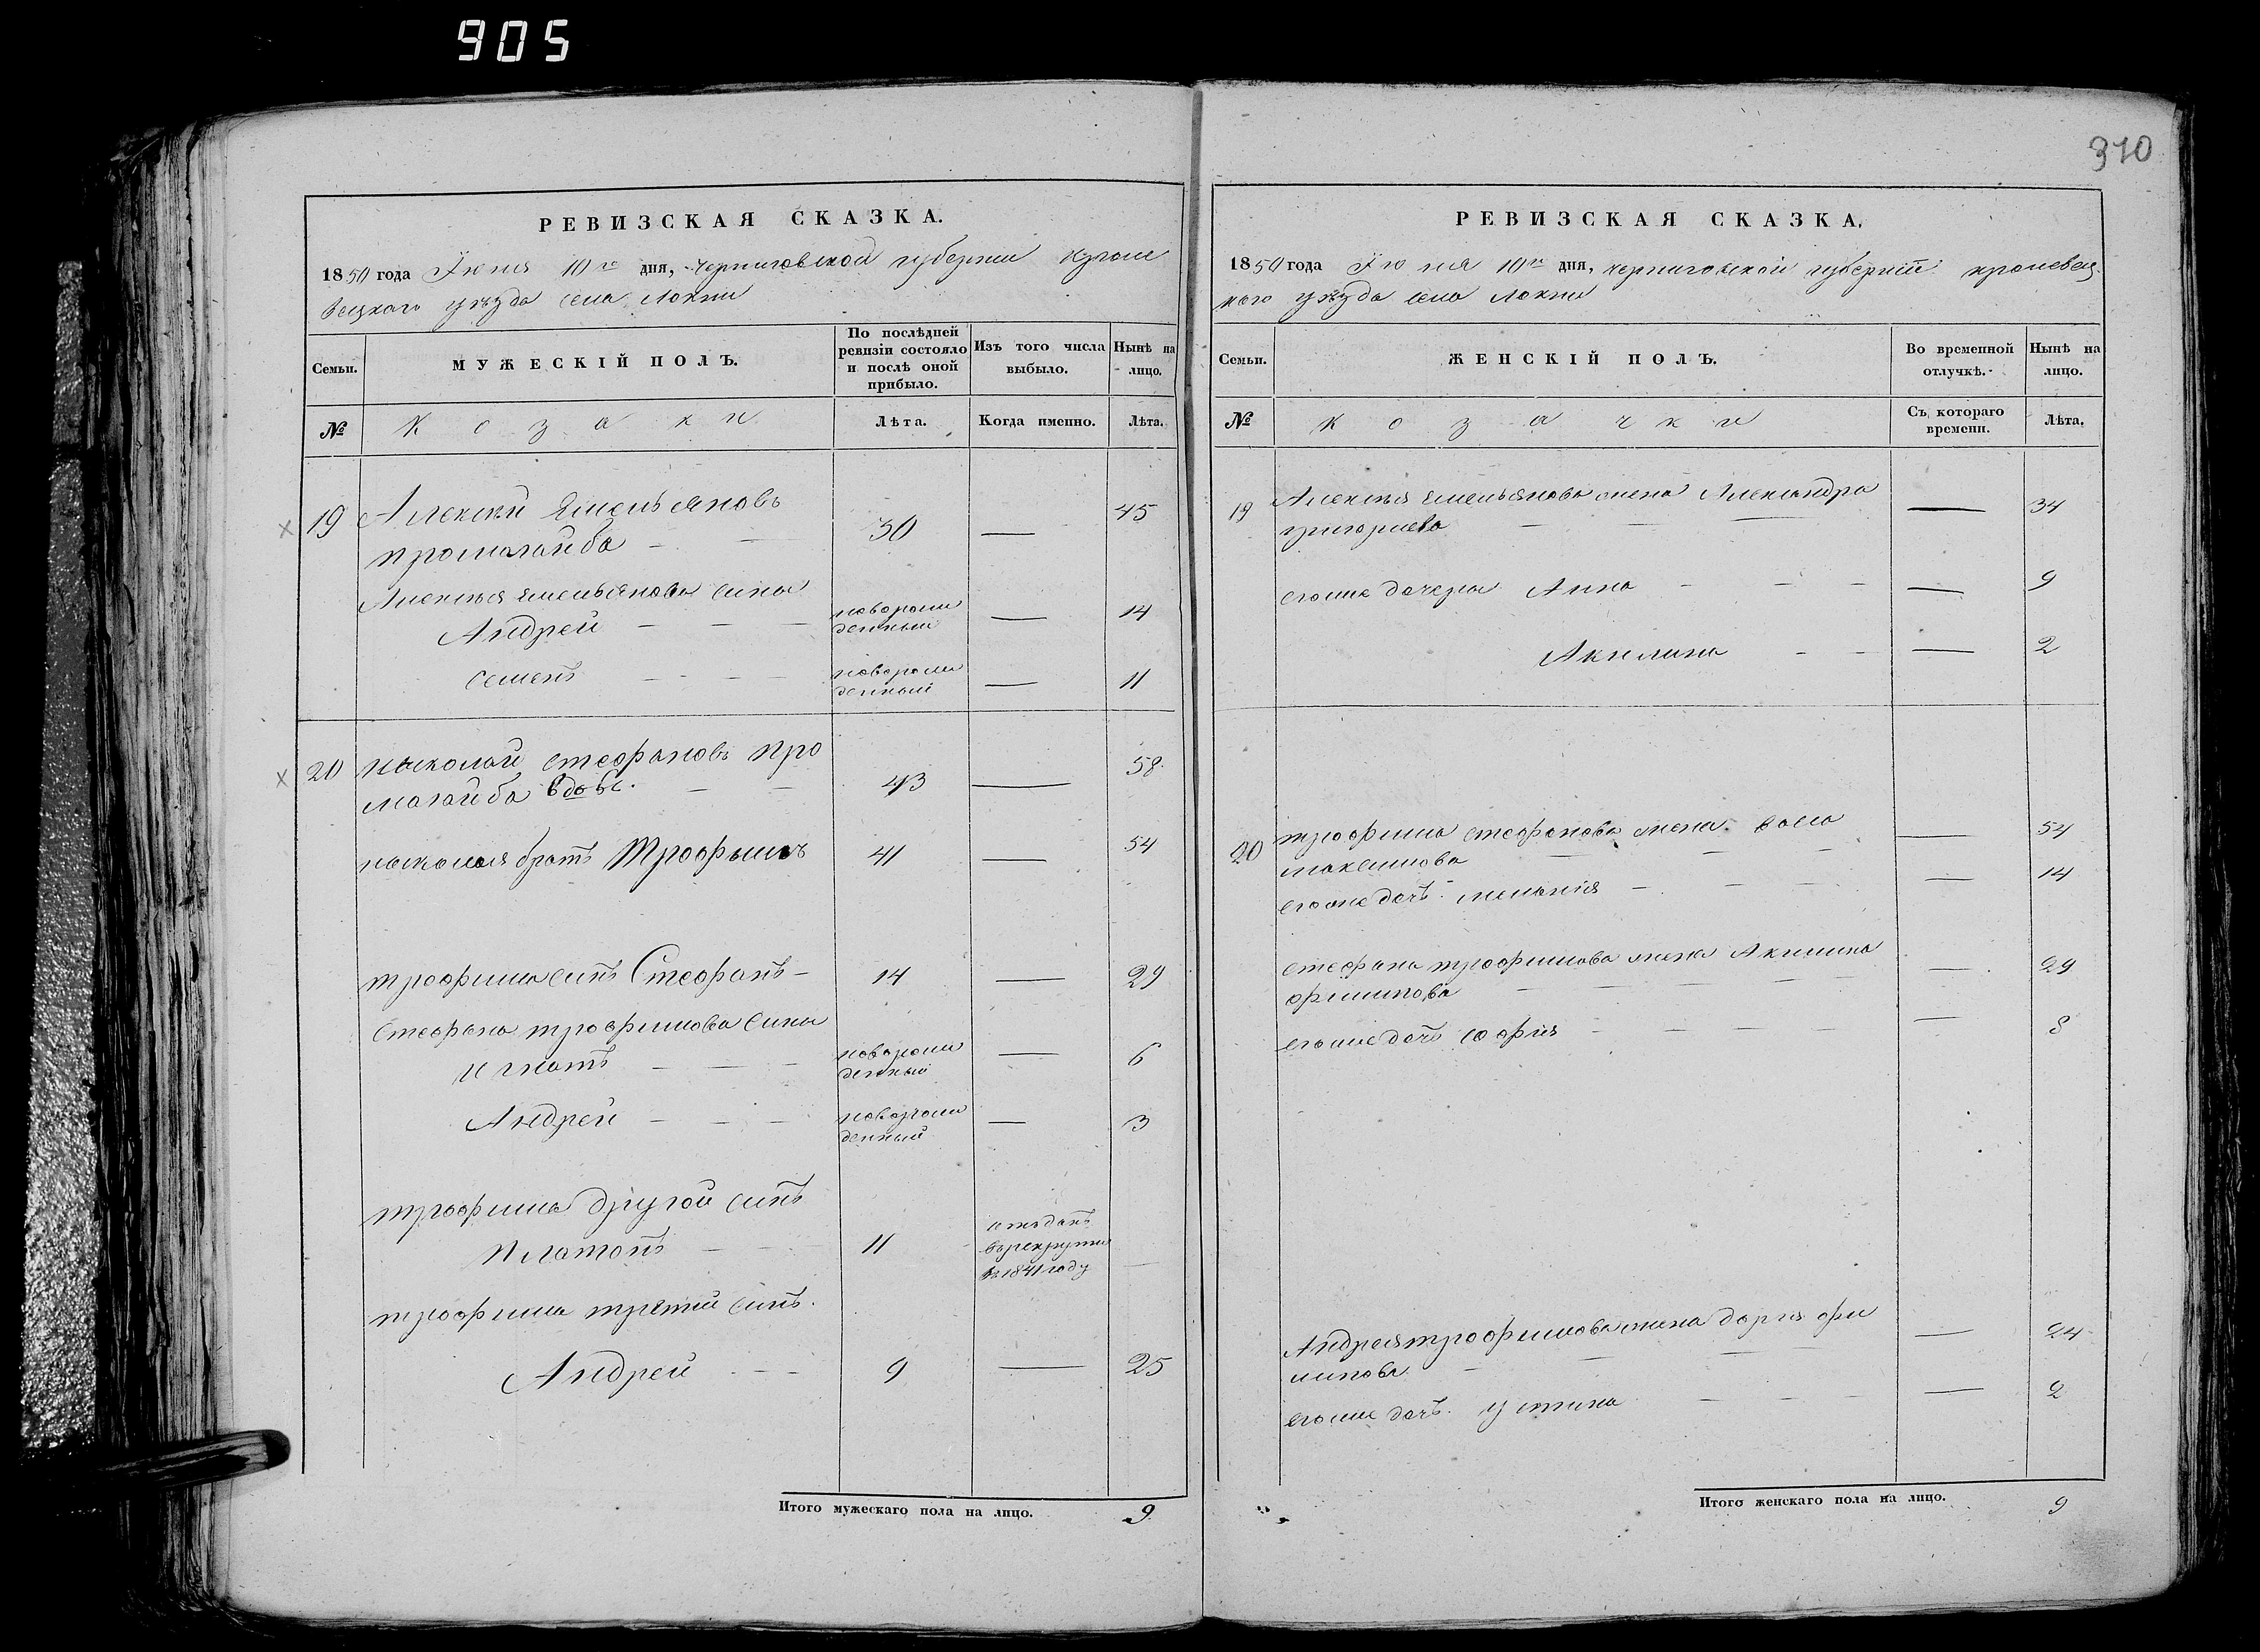 905
310
РЕВИЗСКАЯ СКАЗКА.
1850 года Июня 10го дня, Черниговской губернии Кроле
вецкаго уѣзда села Локни
Семьи.
МУЖЕСКІЙ ПОЛЪ.
По послѣдней ревизіи состояло и послѣ оной прибыло.
Изъ того числа выбыло.
Нынѣ на лицо.
№
Козаки
Лѣта.
Когда именно.
Лѣта.
19 Алексѣй Емельяновъ
Промагайба — — 30 — 45
Алексѣя Емельянова сины
Андрей — — — новорожденный — 14
Семенъ — — — новорожденный — 11
20 Николай Стефановъ Про
магайба вдовъ. — — 43 — 58
Николая братъ Трофымъ 41 — 54
Трофима синъ Стефанъ — 14 — 29
Стефана Трофимова сины
Игнатъ — — — новорожденный — 6
Андрей — — — новорожденный — 3
Трофима другой синъ
Платонъ — — 11 отъданъ въ рекруты въ 1841 году —
Трофима третій синъ.
Андрей — — 9 — 25
Итого мужескаго пола на лицо. 9
РЕВИЗСКАЯ СКАЗКА.
1850 года Июня 10го дня, Черниговской губерніи Кролевец
каго уѣзда села Локни
Семьи.
ЖЕНСКІЙ ПОЛЪ.
Во временной отлучкѣ.
Нынѣ на лицо.
№
Козачки
Съ котораго времени.
Лѣта.
19 Алексѣя Емельянова жена Александра
Григориева — — — — 34
егоже дочери Анна — — — — 9
Акилина — — — 2
20 Трофима Стефанова жена
Максимова — — — — 54
егоже дочь Меланія — — — — 14
Стефана Трофимова жена Акилина
Филипова — — — — — 29
егоже дочь Софія — — — — — 8
Андрея Трофимова жена Дарія Фи
липова — — — — 24
егоже дочь Устина — — — — 2
Итого женскаго пола на лицо. 9